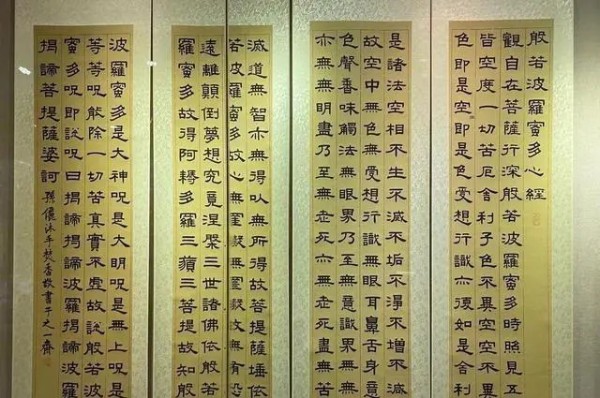 般若波羅蜜多心經
觀自在菩薩行深般若波羅蜜多時照見五
皆空度一切苦厄舍利子色不異空空不異
色即是空即是色受想行識亦復如是舍利
是諸法空相不生不滅不垢不淨不增不減
故空中無色無受想行識無眼耳鼻舌身意
色聲香味觸法無眼界乃至無意識界無無
亦無無明盡乃至無老死亦無老死盡無苦
滅道無智亦無得以無所得故菩提薩埵依
若波羅蜜多故心無罣礙無罣礙故無有恐
遠離顛倒夢想究竟涅槃三世諸佛依般若
羅蜜多故得阿耨多羅三藐三菩提故知般
波羅蜜多是大神呪是大明呪是無上呪是
等等呪能除一切苦真實不虛故說般若波
蜜多呪即說呪曰揭諦揭諦波羅揭諦波羅
揭諦菩提薩婆訶 孫沐手焚香敬書于大一齋